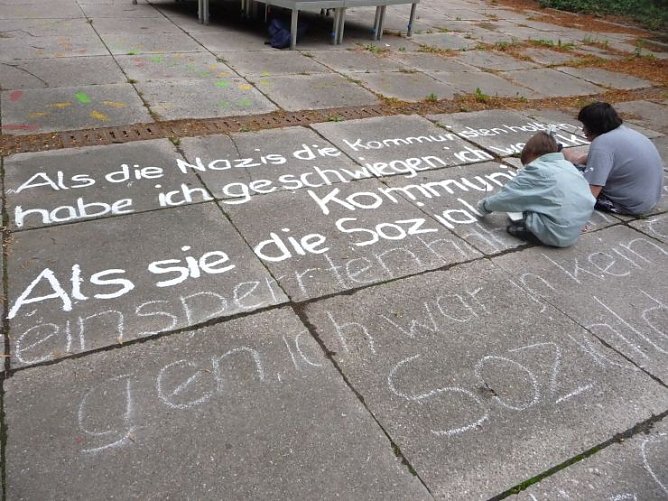 „Als die Nazis die Kommunisten
habe ich geschwiegen; ich
Kommunis
Als sie die Sozial
einsperrten,
gen, ich war ja kein
Soziald